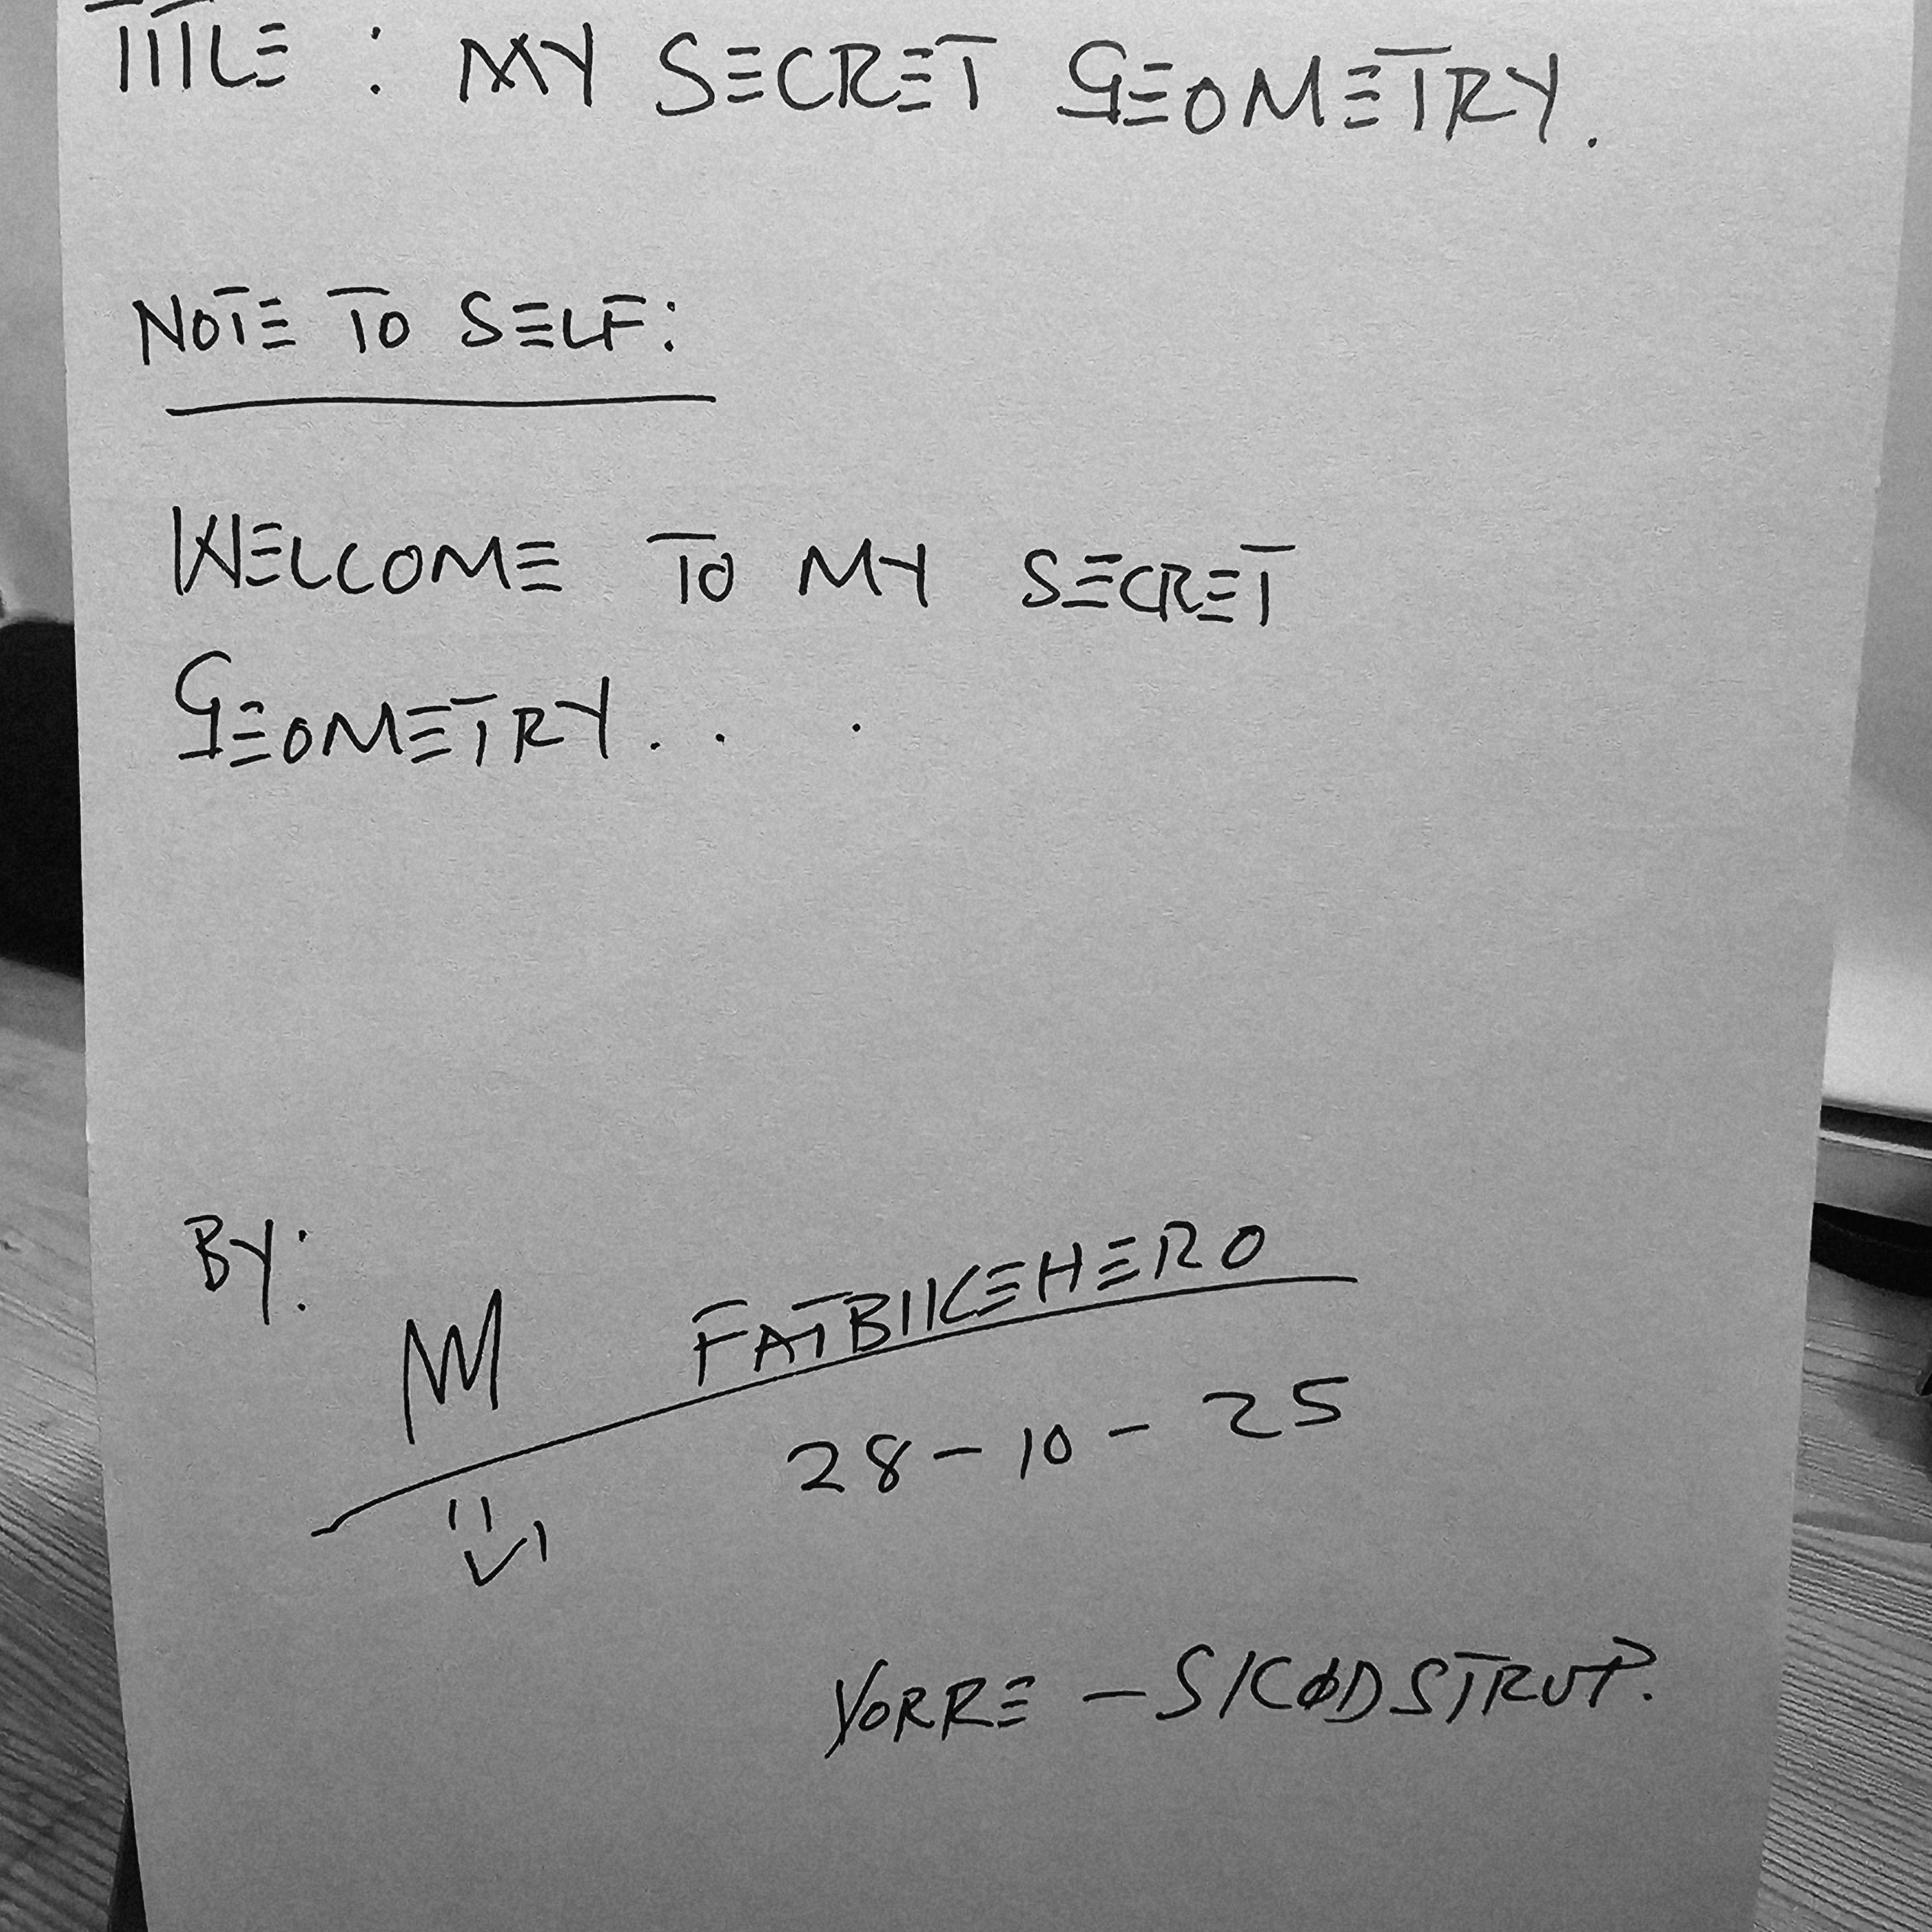 TITLE : MY SECRET GEOMETRY.
NOTE TO SELF:
WELCOME TO MY SECRET
GEOMETRY.. .
BY:
FATBIKEHERO
28-10-25
VORRE - SKØDSTRUP.